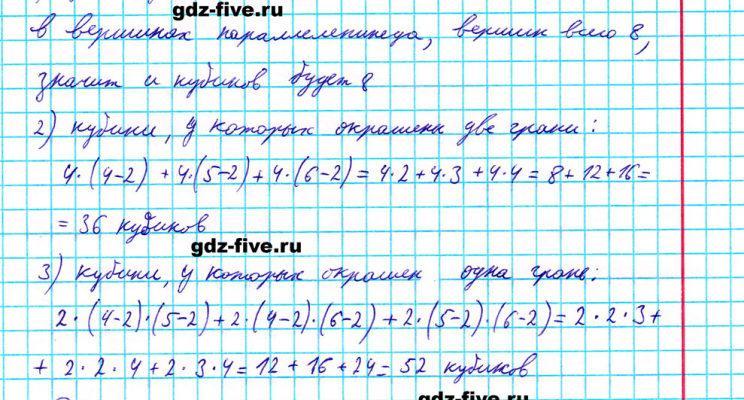 gdz-five.ru
в вершинах параллелепипеда, вершин всего 8,
значит и кубиков будет 8
2) кубики, у которых окрашены две грани:
4·(4-2) + 4·(5-2) + 4·(6-2) = 4·2 + 4·3 + 4·4 = 8 + 12 + 16 =
= 36 кубиков
gdz-five.ru
3) кубики, у которых окрашен одна грань:
2·(4-2)·(5-2) + 2·(4-2)·(6-2) + 2·(5-2)·(6-2) = 2·2·3 +
+ 2·2·4 + 2·3·4 = 12 + 16 + 24 = 52 кубиков
gdz-five.ru